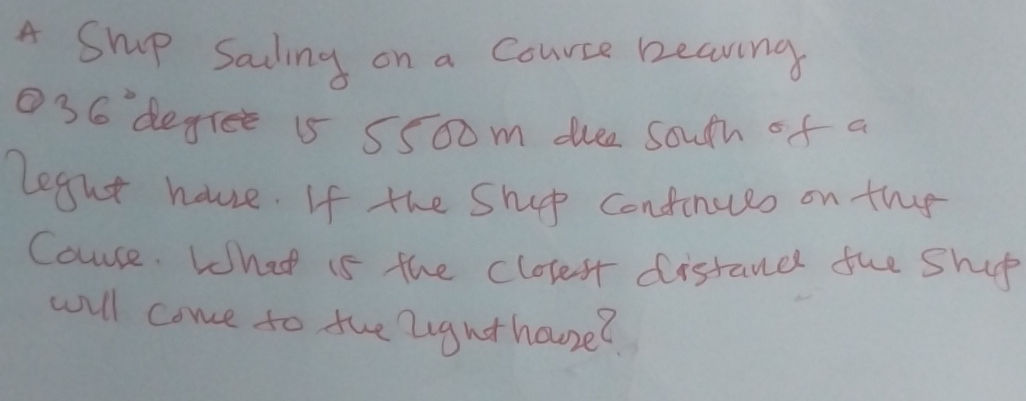 A Ship Sailing on a Course bearing
036° degree is 5500m due South of a
Light house. If the Ship Continues on this
Course. What is the closest distance the Ship
will come to the Lighthouse?